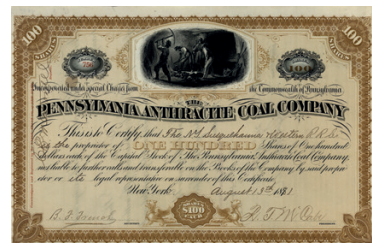 100 100
SHARES SHARES
100
Incorporated under Special Charter from the Commonwealth of Pennsylvania
THE
PENNSYLVANIA ANTHRACITE COAL COMPANY
This is to Certify that The N.Y. Susquehanna & Western R.R. Co.
is the proprietor of ONE HUNDRED Shares of One hundred
dollars each of the Capital Stock of The Pennsylvania Anthracite Coal Company,
not liable to further calls and transferable on the Books of the Company by said proprie-
tor or its legal representative on surrender of this Certificate.
New York, August 13th 1891
$100